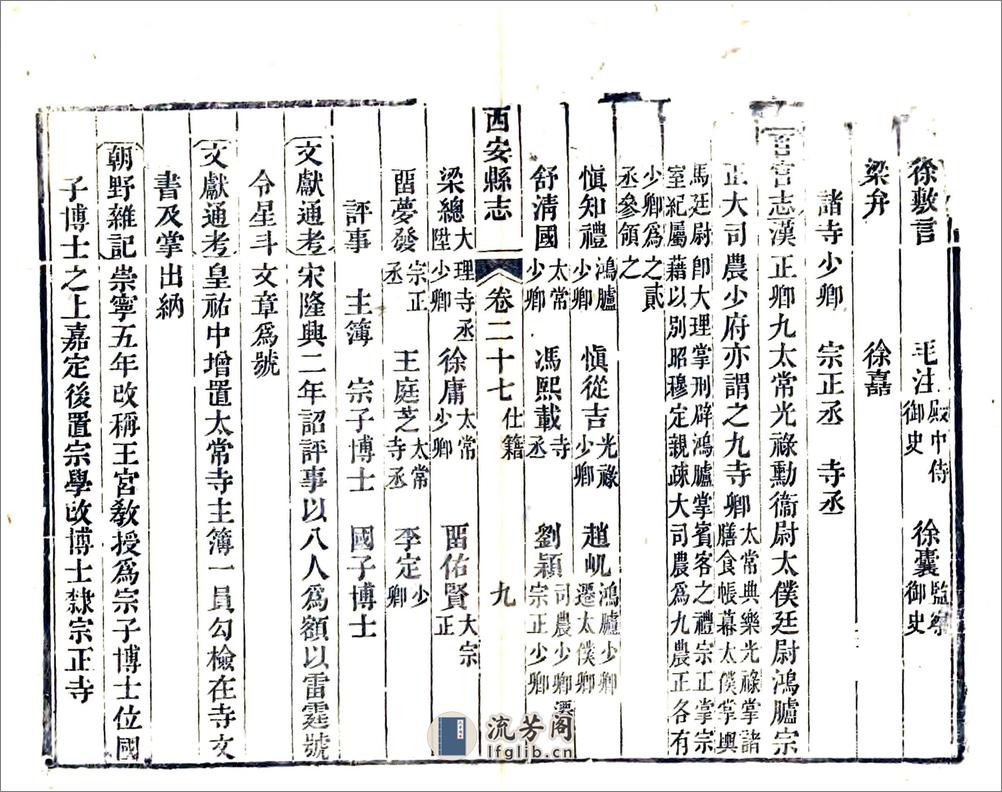 徐敷言　毛注殿中侍御史　徐囊監察御史
梁弁　徐嚞
諸寺少卿　宗正丞　寺丞
言志漢正卿九太常光祿勳衞尉太僕廷尉鴻臚宗
正大司農少府亦謂之九寺卿太常典樂光祿掌諸膳食帳幕太僕掌輿
馬廷尉卽大理掌刑辟鴻臚掌賓客之禮宗正掌宗
室紀屬藉以別昭穆定親疎大司農爲九農正各有
少卿爲之貳
丞參領之
愼知禮鴻臚少卿　愼從吉光祿少卿　趙㞦鴻臚少卿遷太僕卿
舒淸國太常少卿　馮熙載寺丞　劉穎司農少卿遷宗正少卿
西安縣志　卷二十七　仕籍　九
梁總大理寺丞陞少卿　徐庸太常少卿　畱佑賢大宗正
畱夢發宗正丞　王庭芝太常寺丞　李定少卿
評事　主簿　宗子博士　國子博士
文獻通考宋隆興二年詔評事以八人爲額以雷霆號
令星斗文章爲號
文獻通考皇祐中增置太常寺主簿一員勾檢在寺文
書及掌出納
朝野雜記崇寧五年改稱王宮敎授爲宗子博士位國
子博士之上嘉定後置宗學改博士隸宗正寺
流芳阁
lfglib.cn